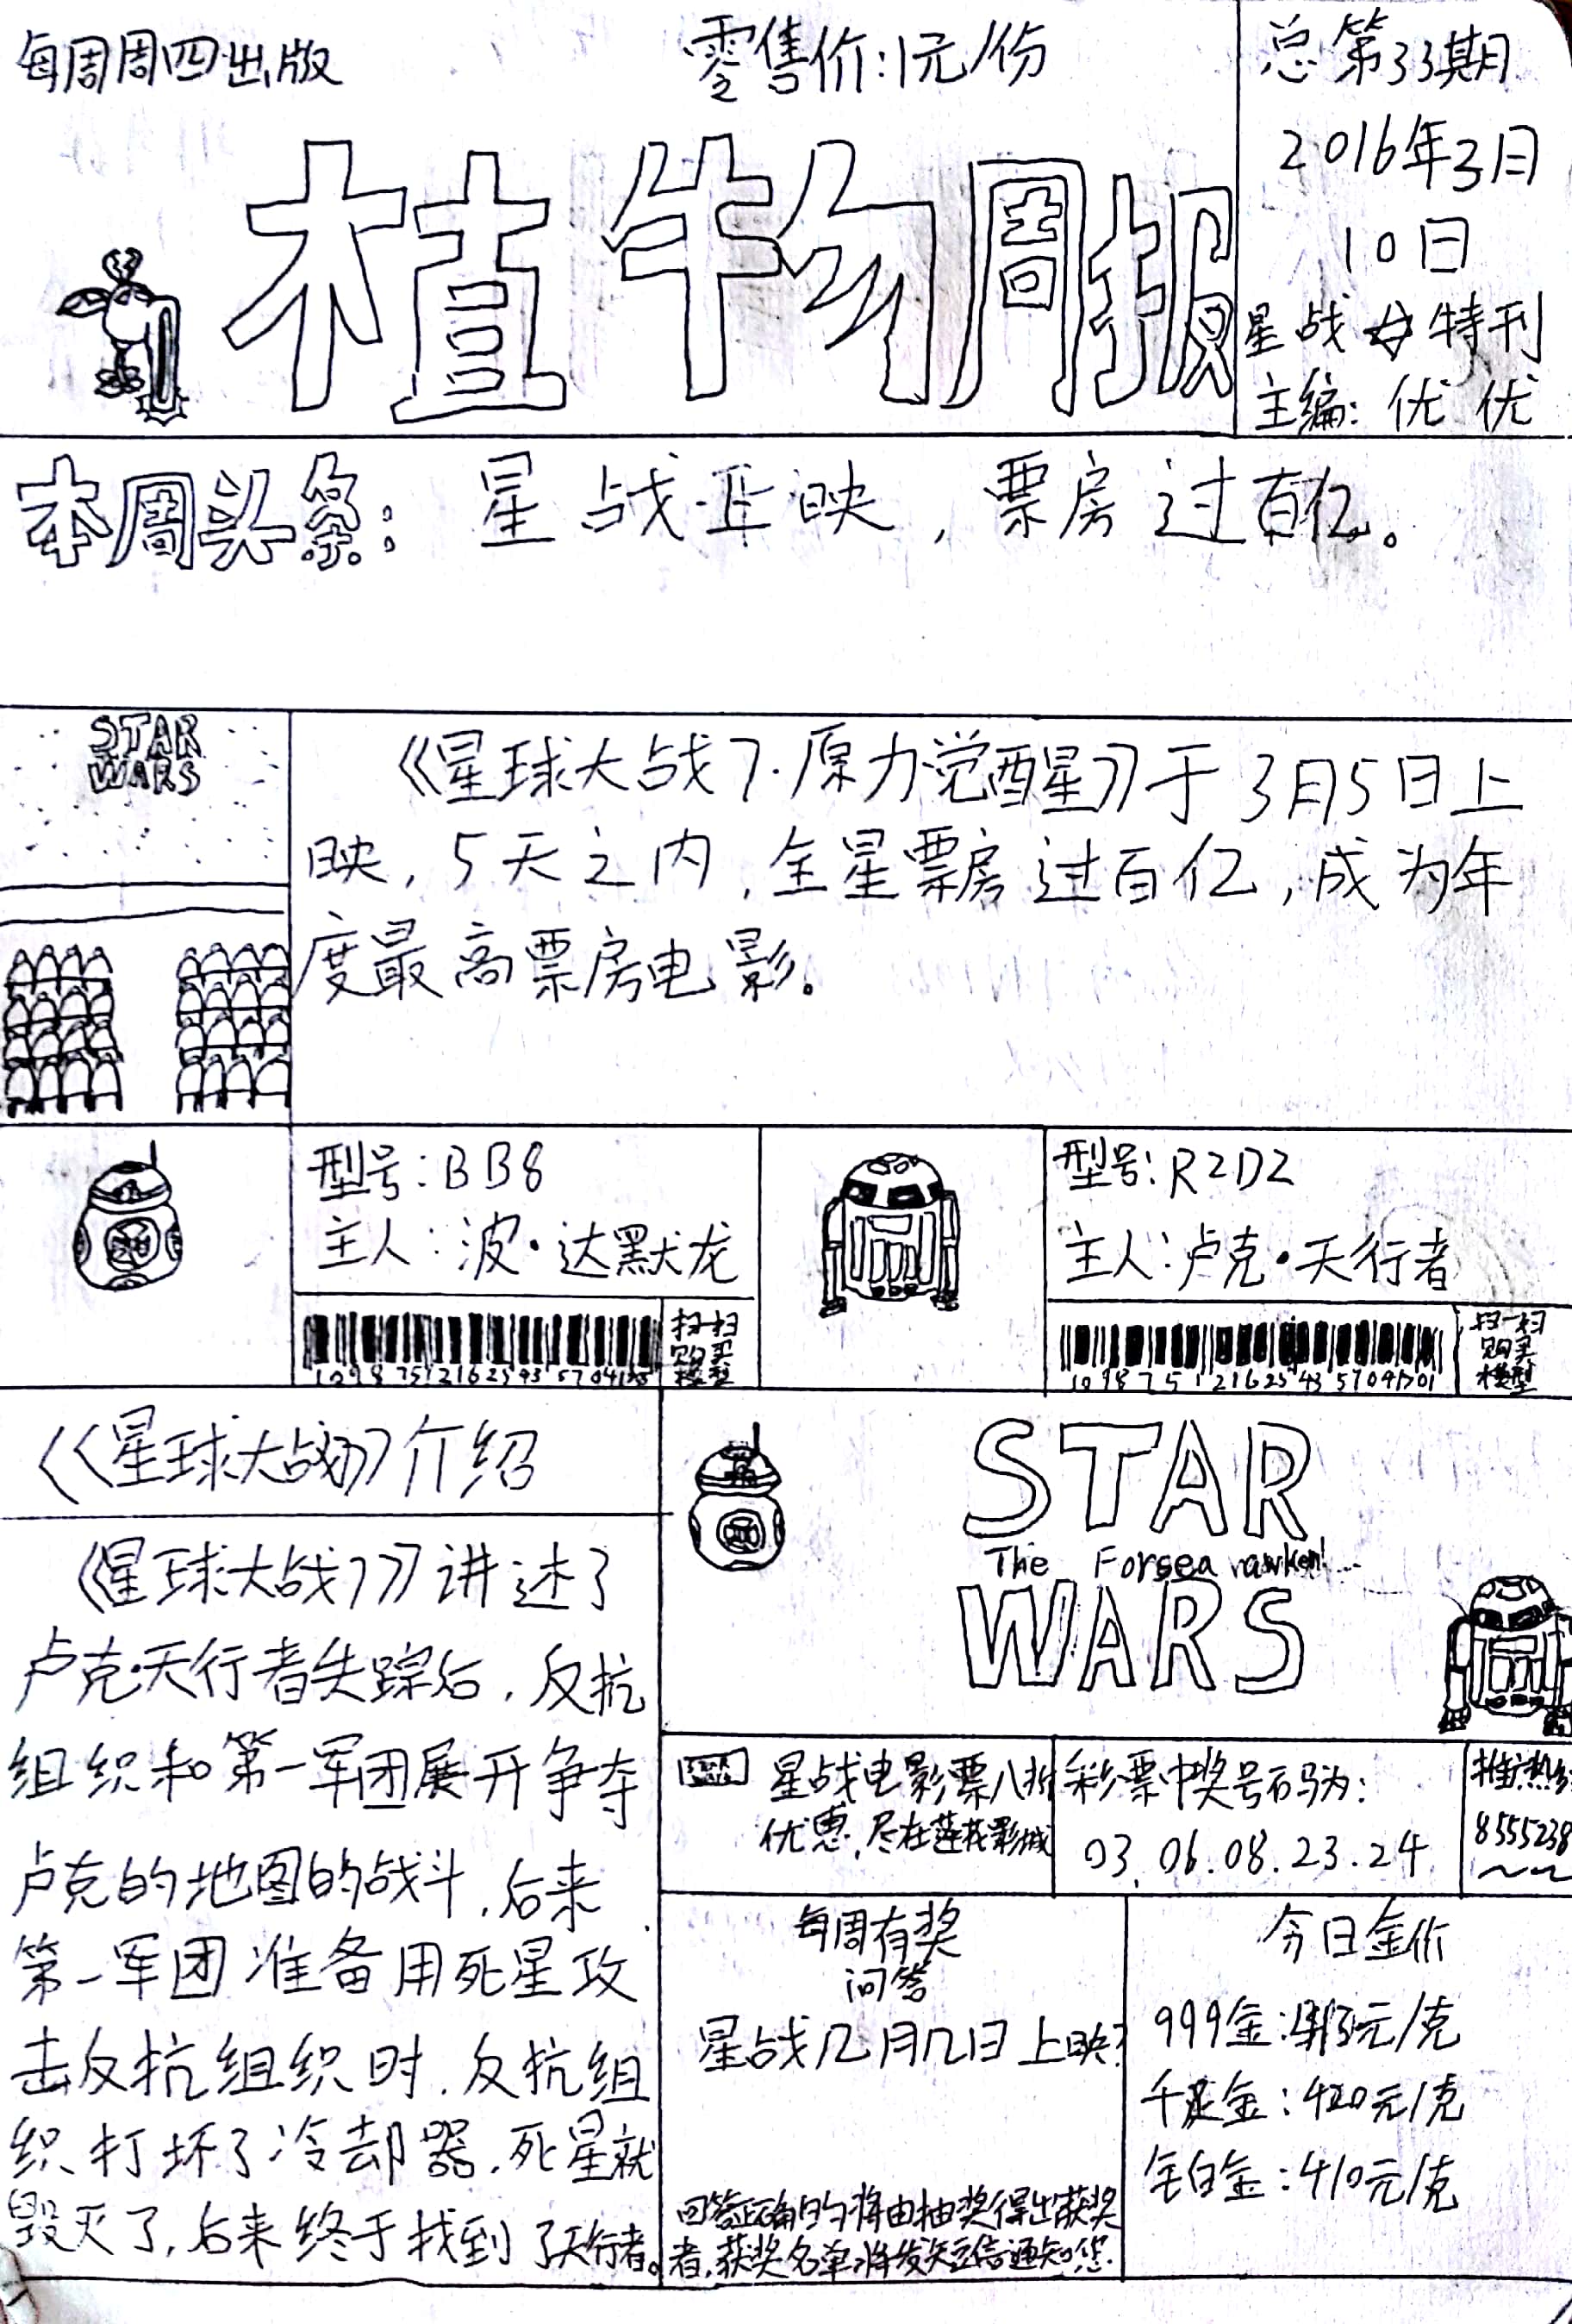 每周周四出版
零售价:1元/份
总第33期
2016年3月
10日
星战特刊
主编: 优优
植物周报
本周头条: 星战上映,票房过百亿。
STAR
WARS
《星球大战7·原力觉醒》于3月5日上
映,5天之内,全星票房过百亿,成为年
度最高票房电影。
型号:BB8
主人:波·达默龙
扫一扫
购买
模型
型号:R2D2
主人:卢克·天行者
扫一扫
购买
模型
《星球大战》介绍
《星球大战7》讲述了
卢克·天行者失踪后,反抗
组织和第一军团展开争夺
卢克的地图的战斗,后来
第一军团准备用死星攻
击反抗组织时,反抗组
织打坏了冷却器,死星就
毁灭了,后来终于找到了天行者。
STAR
The Forsea rawken!
WARS
星战电影票八折
优惠,尽在莲花影城
彩票中奖号码为:
03.06.08.23.24
推广热线
8555238
每周有奖
问答
星战几月几日上映?
回答正确的将由抽奖得出获奖
者,获奖名单将发短信通知您.
今日金价
999金:元/克
千足金:420元/克
铂金:410元/克